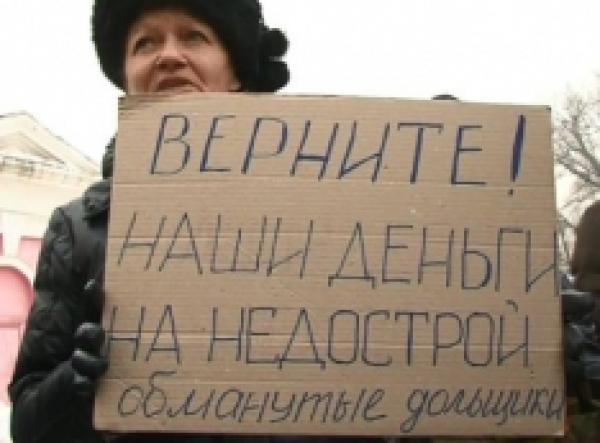 ВЕРНИТЕ!
НАШИ ДЕНЬГИ
НА НЕДОСТРОЙ
обманутые дольщики